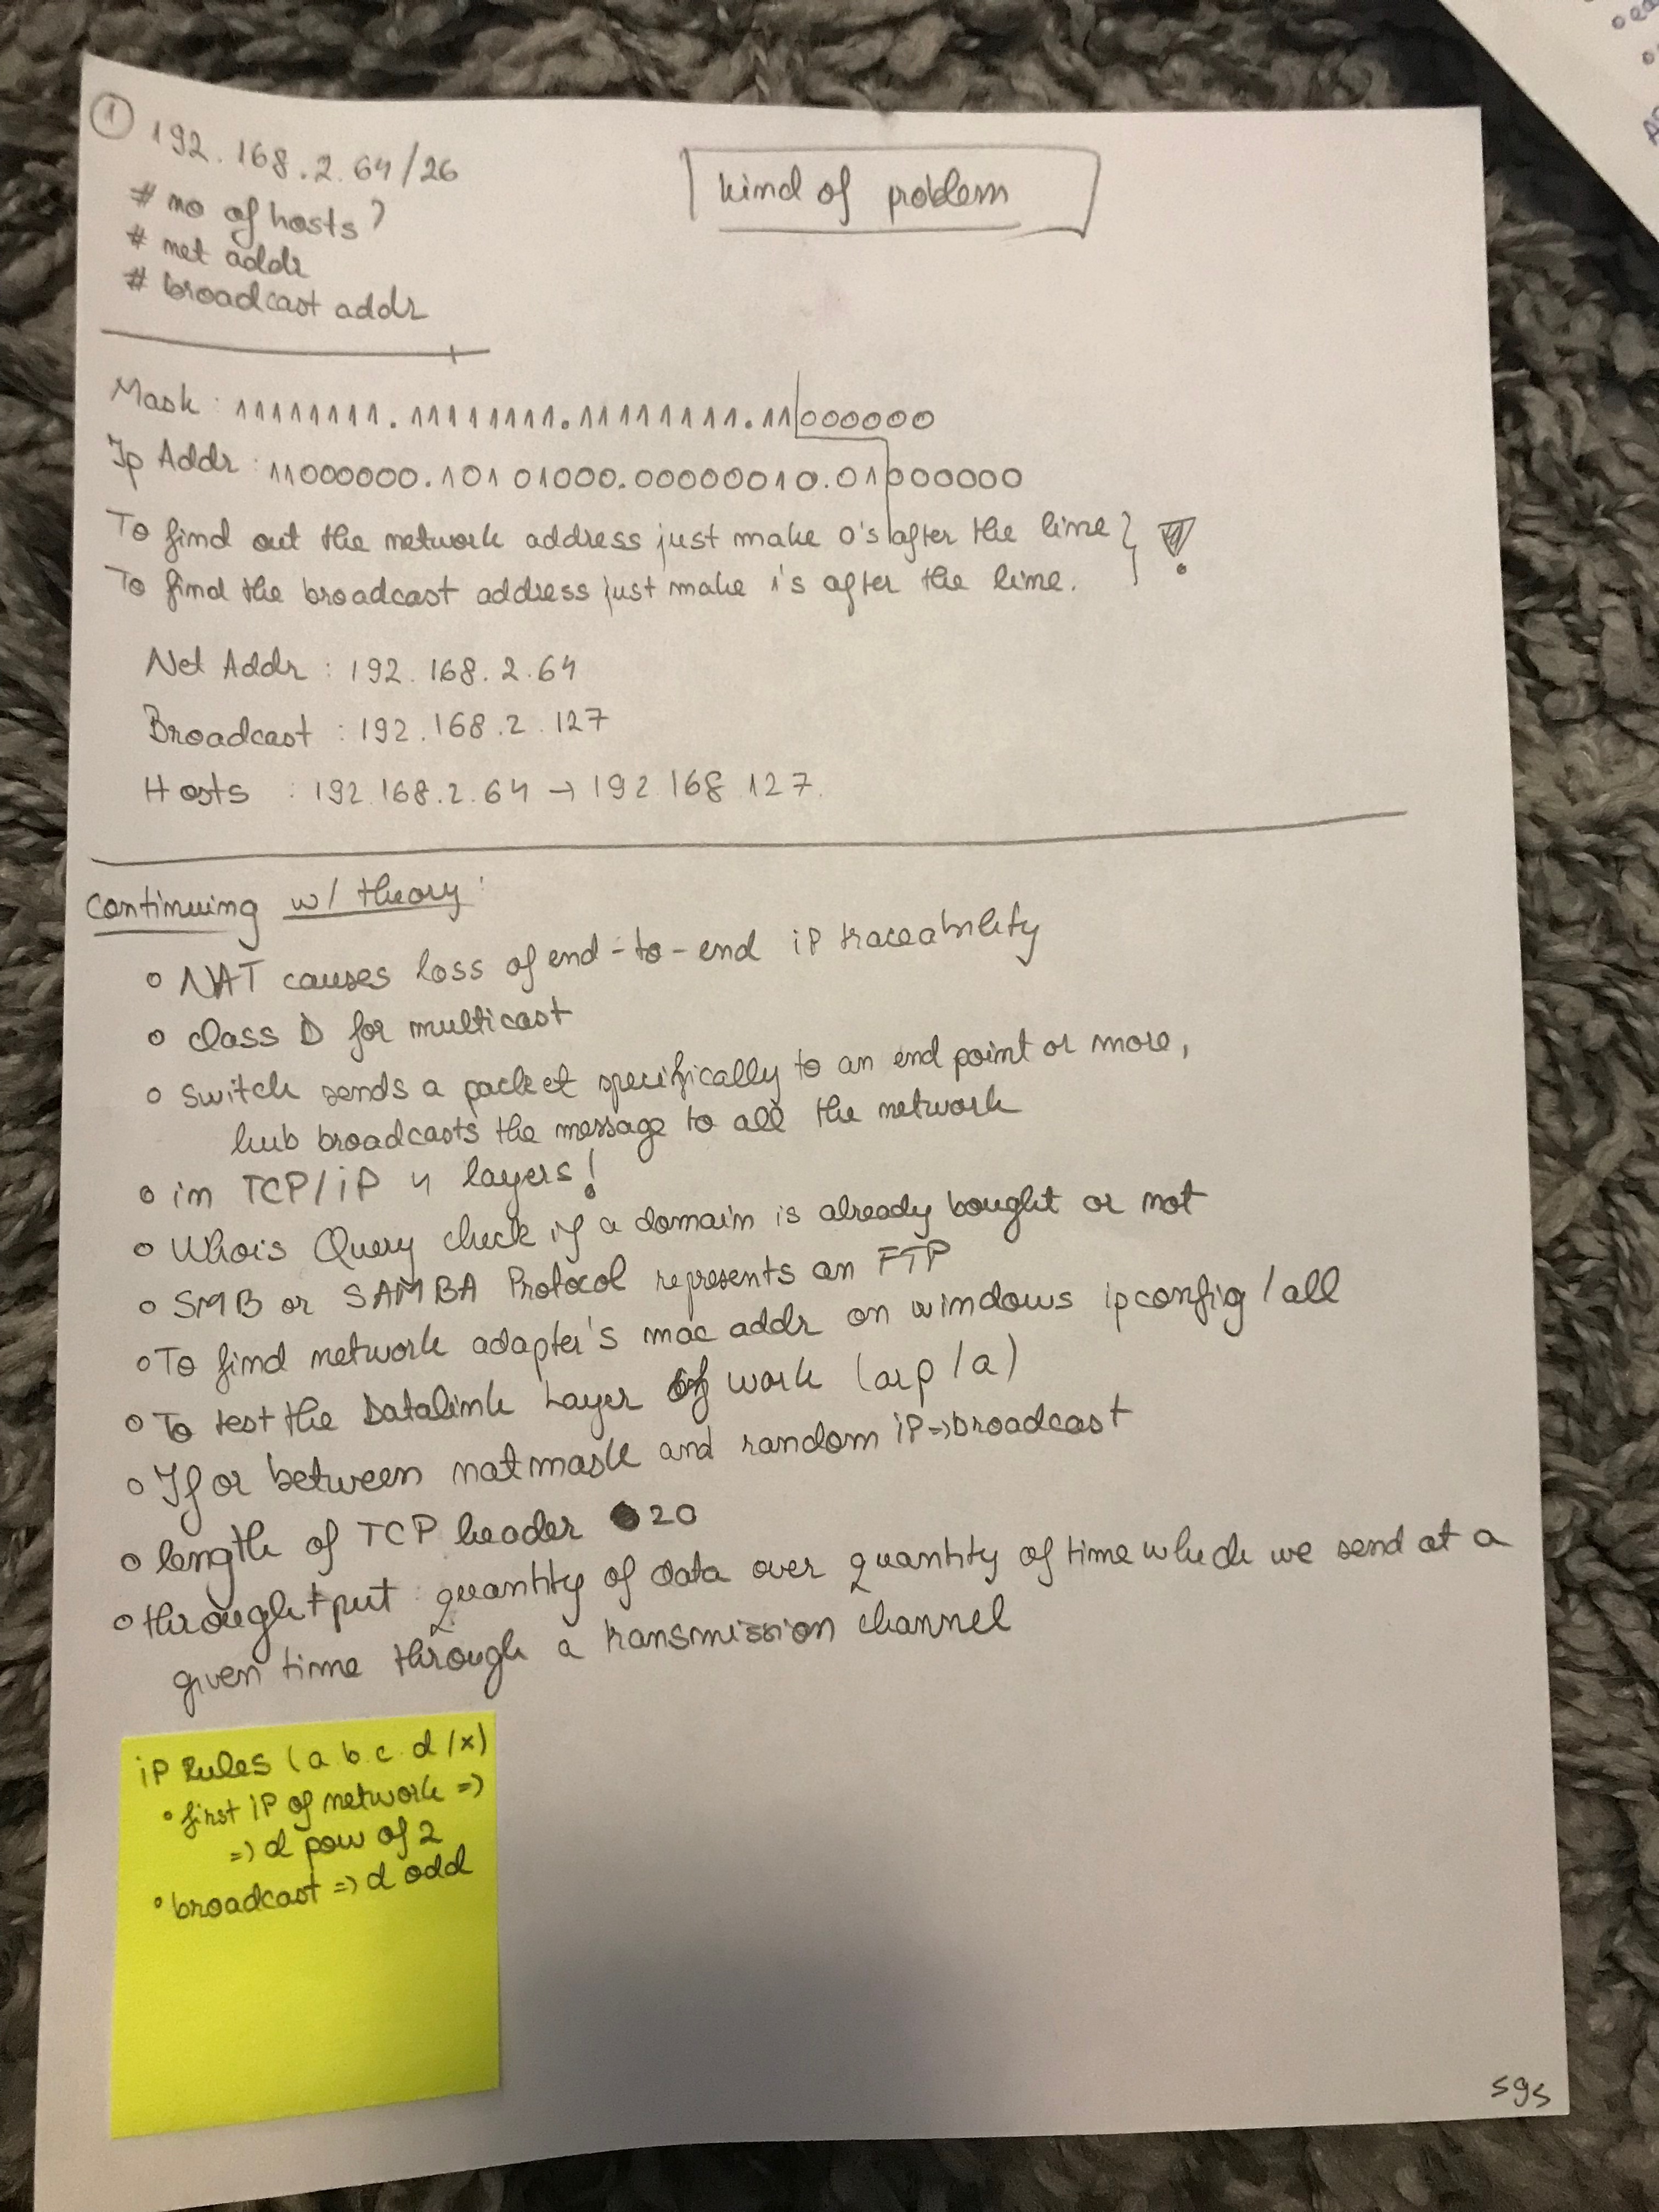 ① 192.168.2.64/26
kind of problem
# no of hosts?
# net addr
# broadcast addr
Mask : 11111111.11111111.11111111.11000000
Ip Addr : 11000000.10101000.00000010.01000000
To find out the network address just make 0's after the line } !
To find the broadcast address just make 1's after the line.
Net Addr : 192.168.2.64
Broadcast : 192.168.2.127
Hosts : 192.168.2.64 → 192 168 127.
Continuing w/ theory:
o NAT causes loss of end-to-end iP traceability
o class D for multicast
o switch sends a packet specifically to an end point or more,
hub broadcasts the message to all the network
o in TCP/iP 4 layers!
o Whois Query check if a domain is already bought or not
o SMB or SAMBA Protocol represents an FTP
o To find network adapter's mac addr on windows ipconfig /all
o To test the Datalink Layer of work (arp /a)
o If or between natmask and random iP => broadcast
o length of TCP header 20
o throughtput : quantity of data over quantity of time which we send at a
given time through a transmission channel
iP Rules (a b.c.d/x)
• first iP of network =>
=> d pow of 2
• broadcast => d odd
sgs